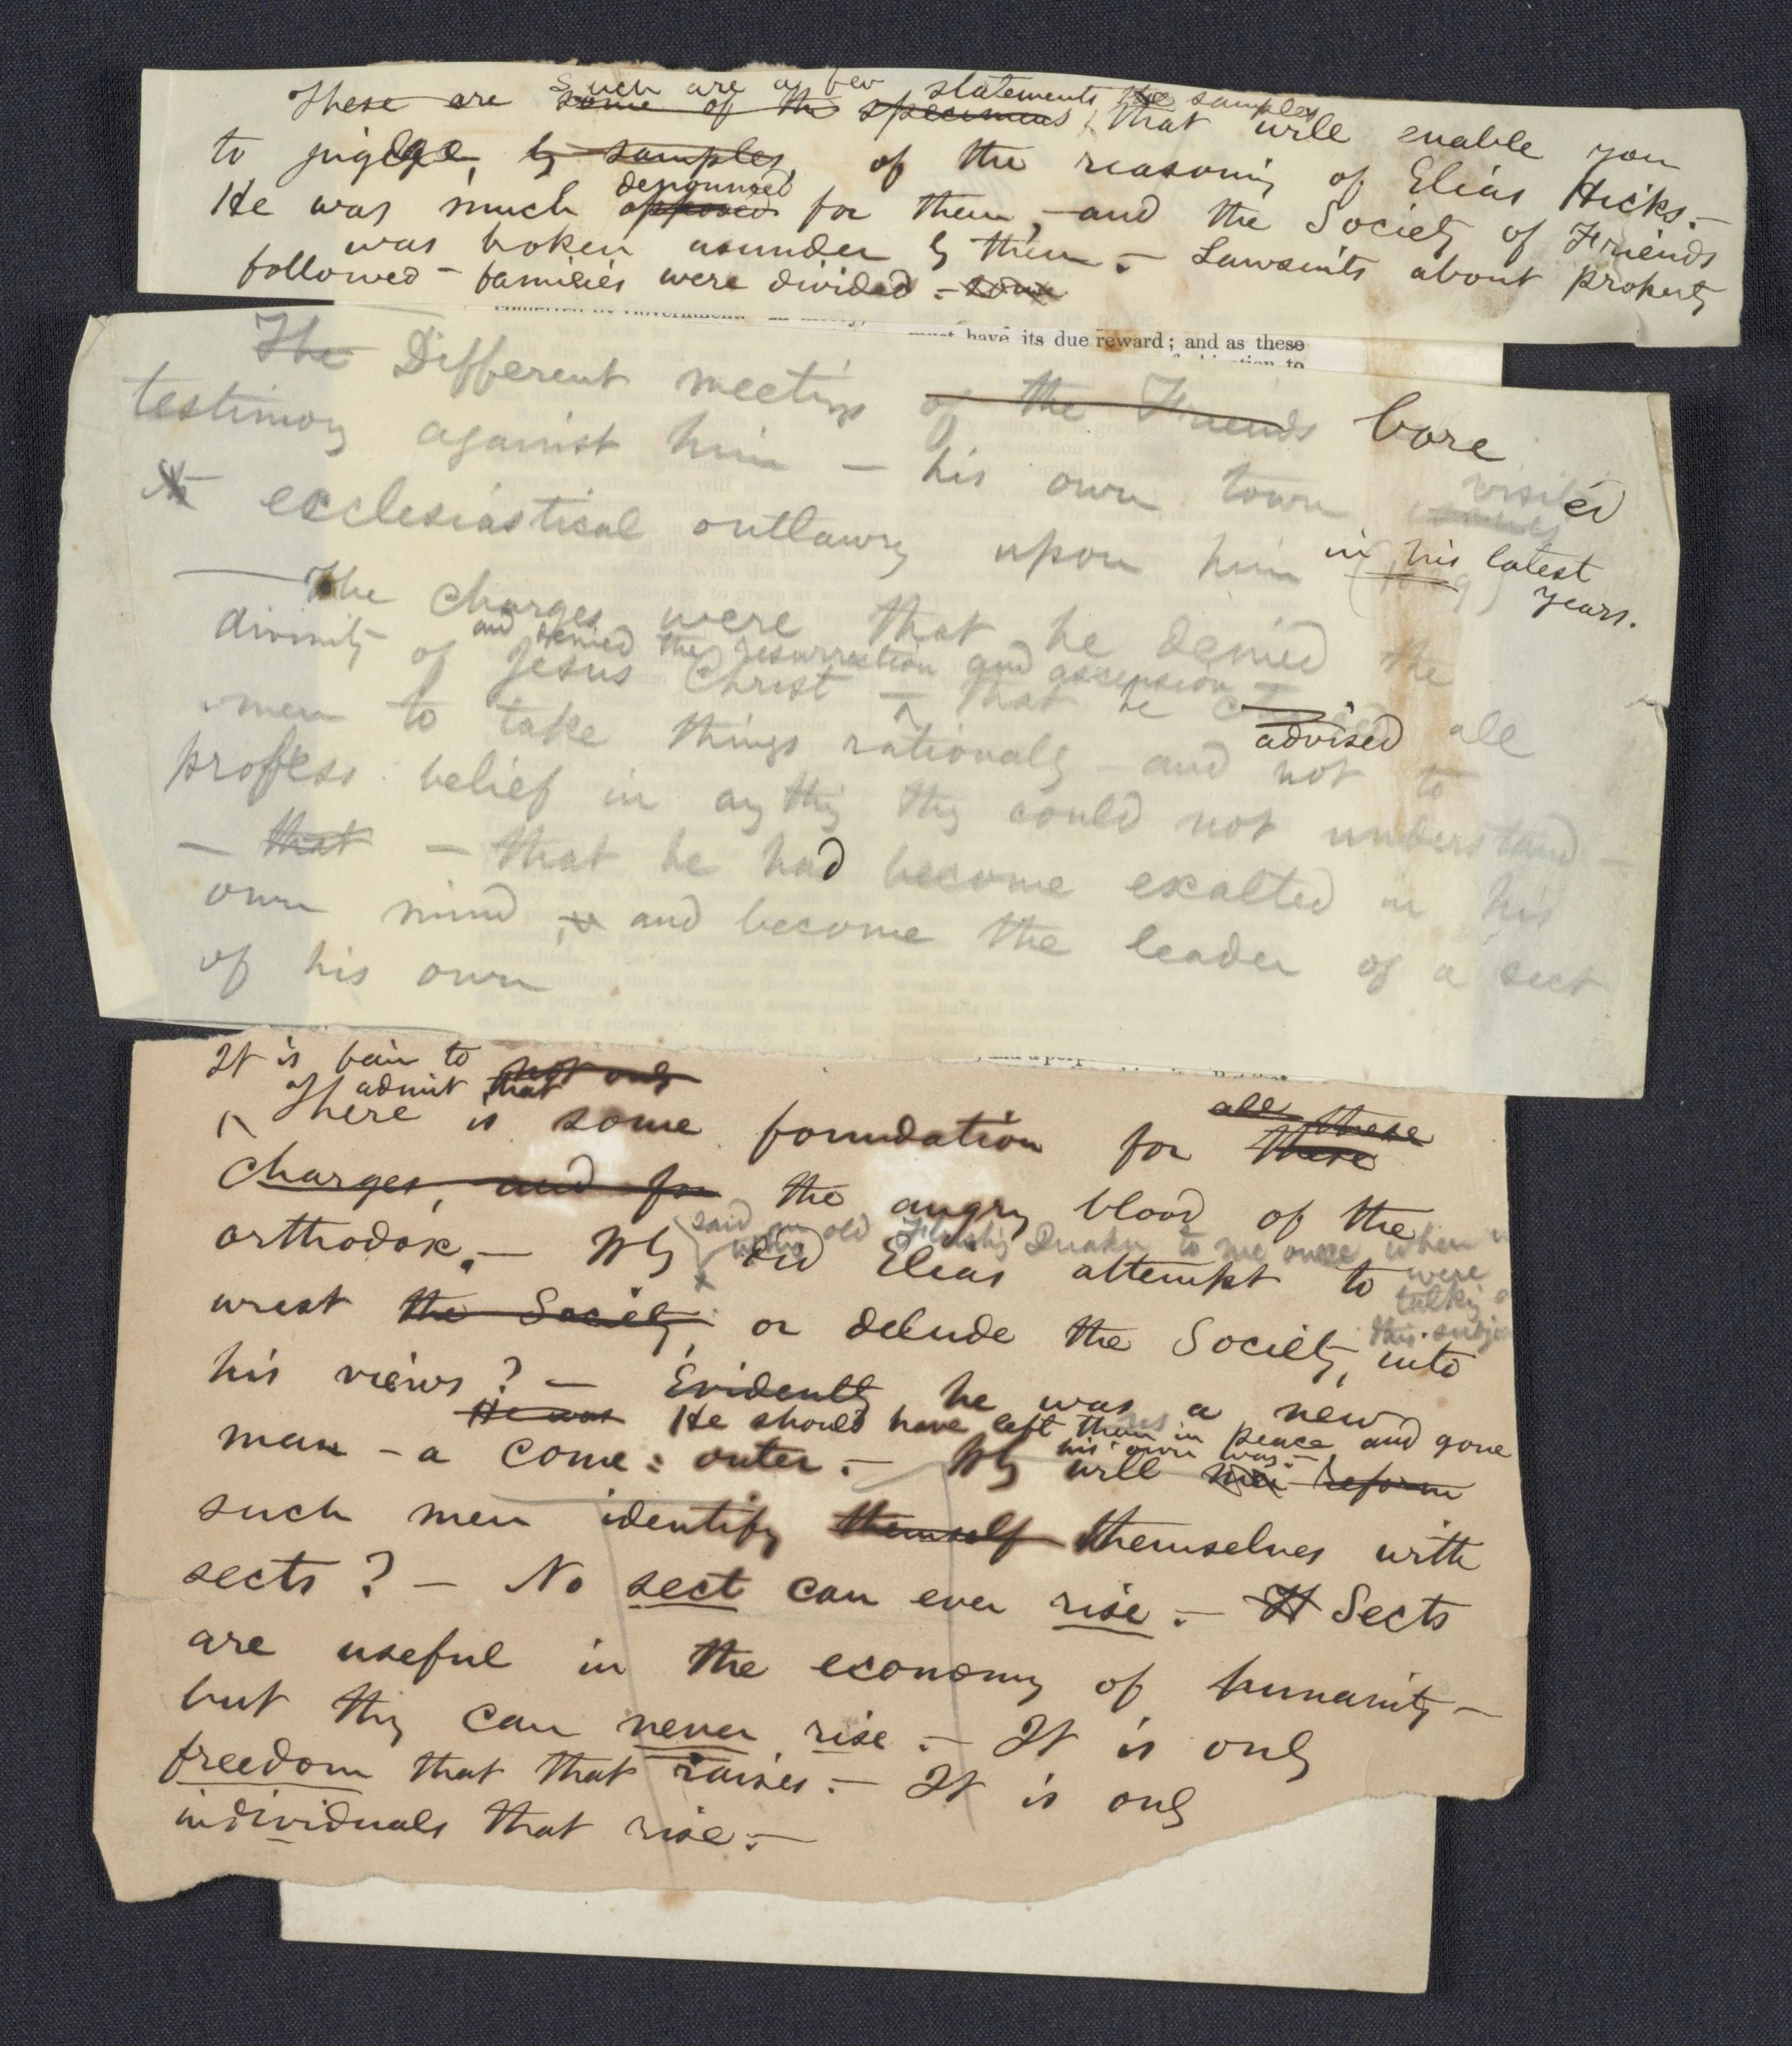 Such are a few statements, the samples
These are some of the specimens, that will enable you
to judge, by samples, of the reasoning of Elias Hicks.—
denounced
He was much opposed for them, — and the Society of Friends
was broken asunder by them. — Lawsuits about property
followed — families were divided. — some
must have its due reward; and as these
The Different meetings of the Friends bore
testimony against him — his own town visited
ecclesiastical outlawry upon him (1829) in his latest
years.
— The charges were that he denied the
and denied the resurrection and ascension
divinity of Jesus Christ — that he advised all
men to take things rationally — and not to
proffess belief in any thing they could not understand —
— that — that he had become exalted in his
own mind, and become the leader of a sect
of his own
It is fair to
admit that not only
all these
There is some foundation for these
charges, and for the angry blood of the
said an old Flushing Quaker to me once, when we
were
talking
this subject
orthodox. — Why did Elias attempt to
wrest the Society, or delude the Society, into
his views? — Evidently he was a new
He was He should have left them in peace, and gone
his own way. —
man — a come-outer. — Why will men reform
such men identify themself themselves with
sects? — No sect can ever rise. — It Sects
are useful in the economy of humanity —
but they can never rise. — It is only
freedom that that raises. — It is only
individuals that rise. —